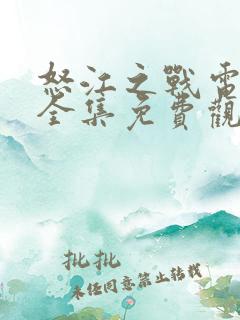 怒江之戰電
全集免費觀
批批
未经同意禁止转载